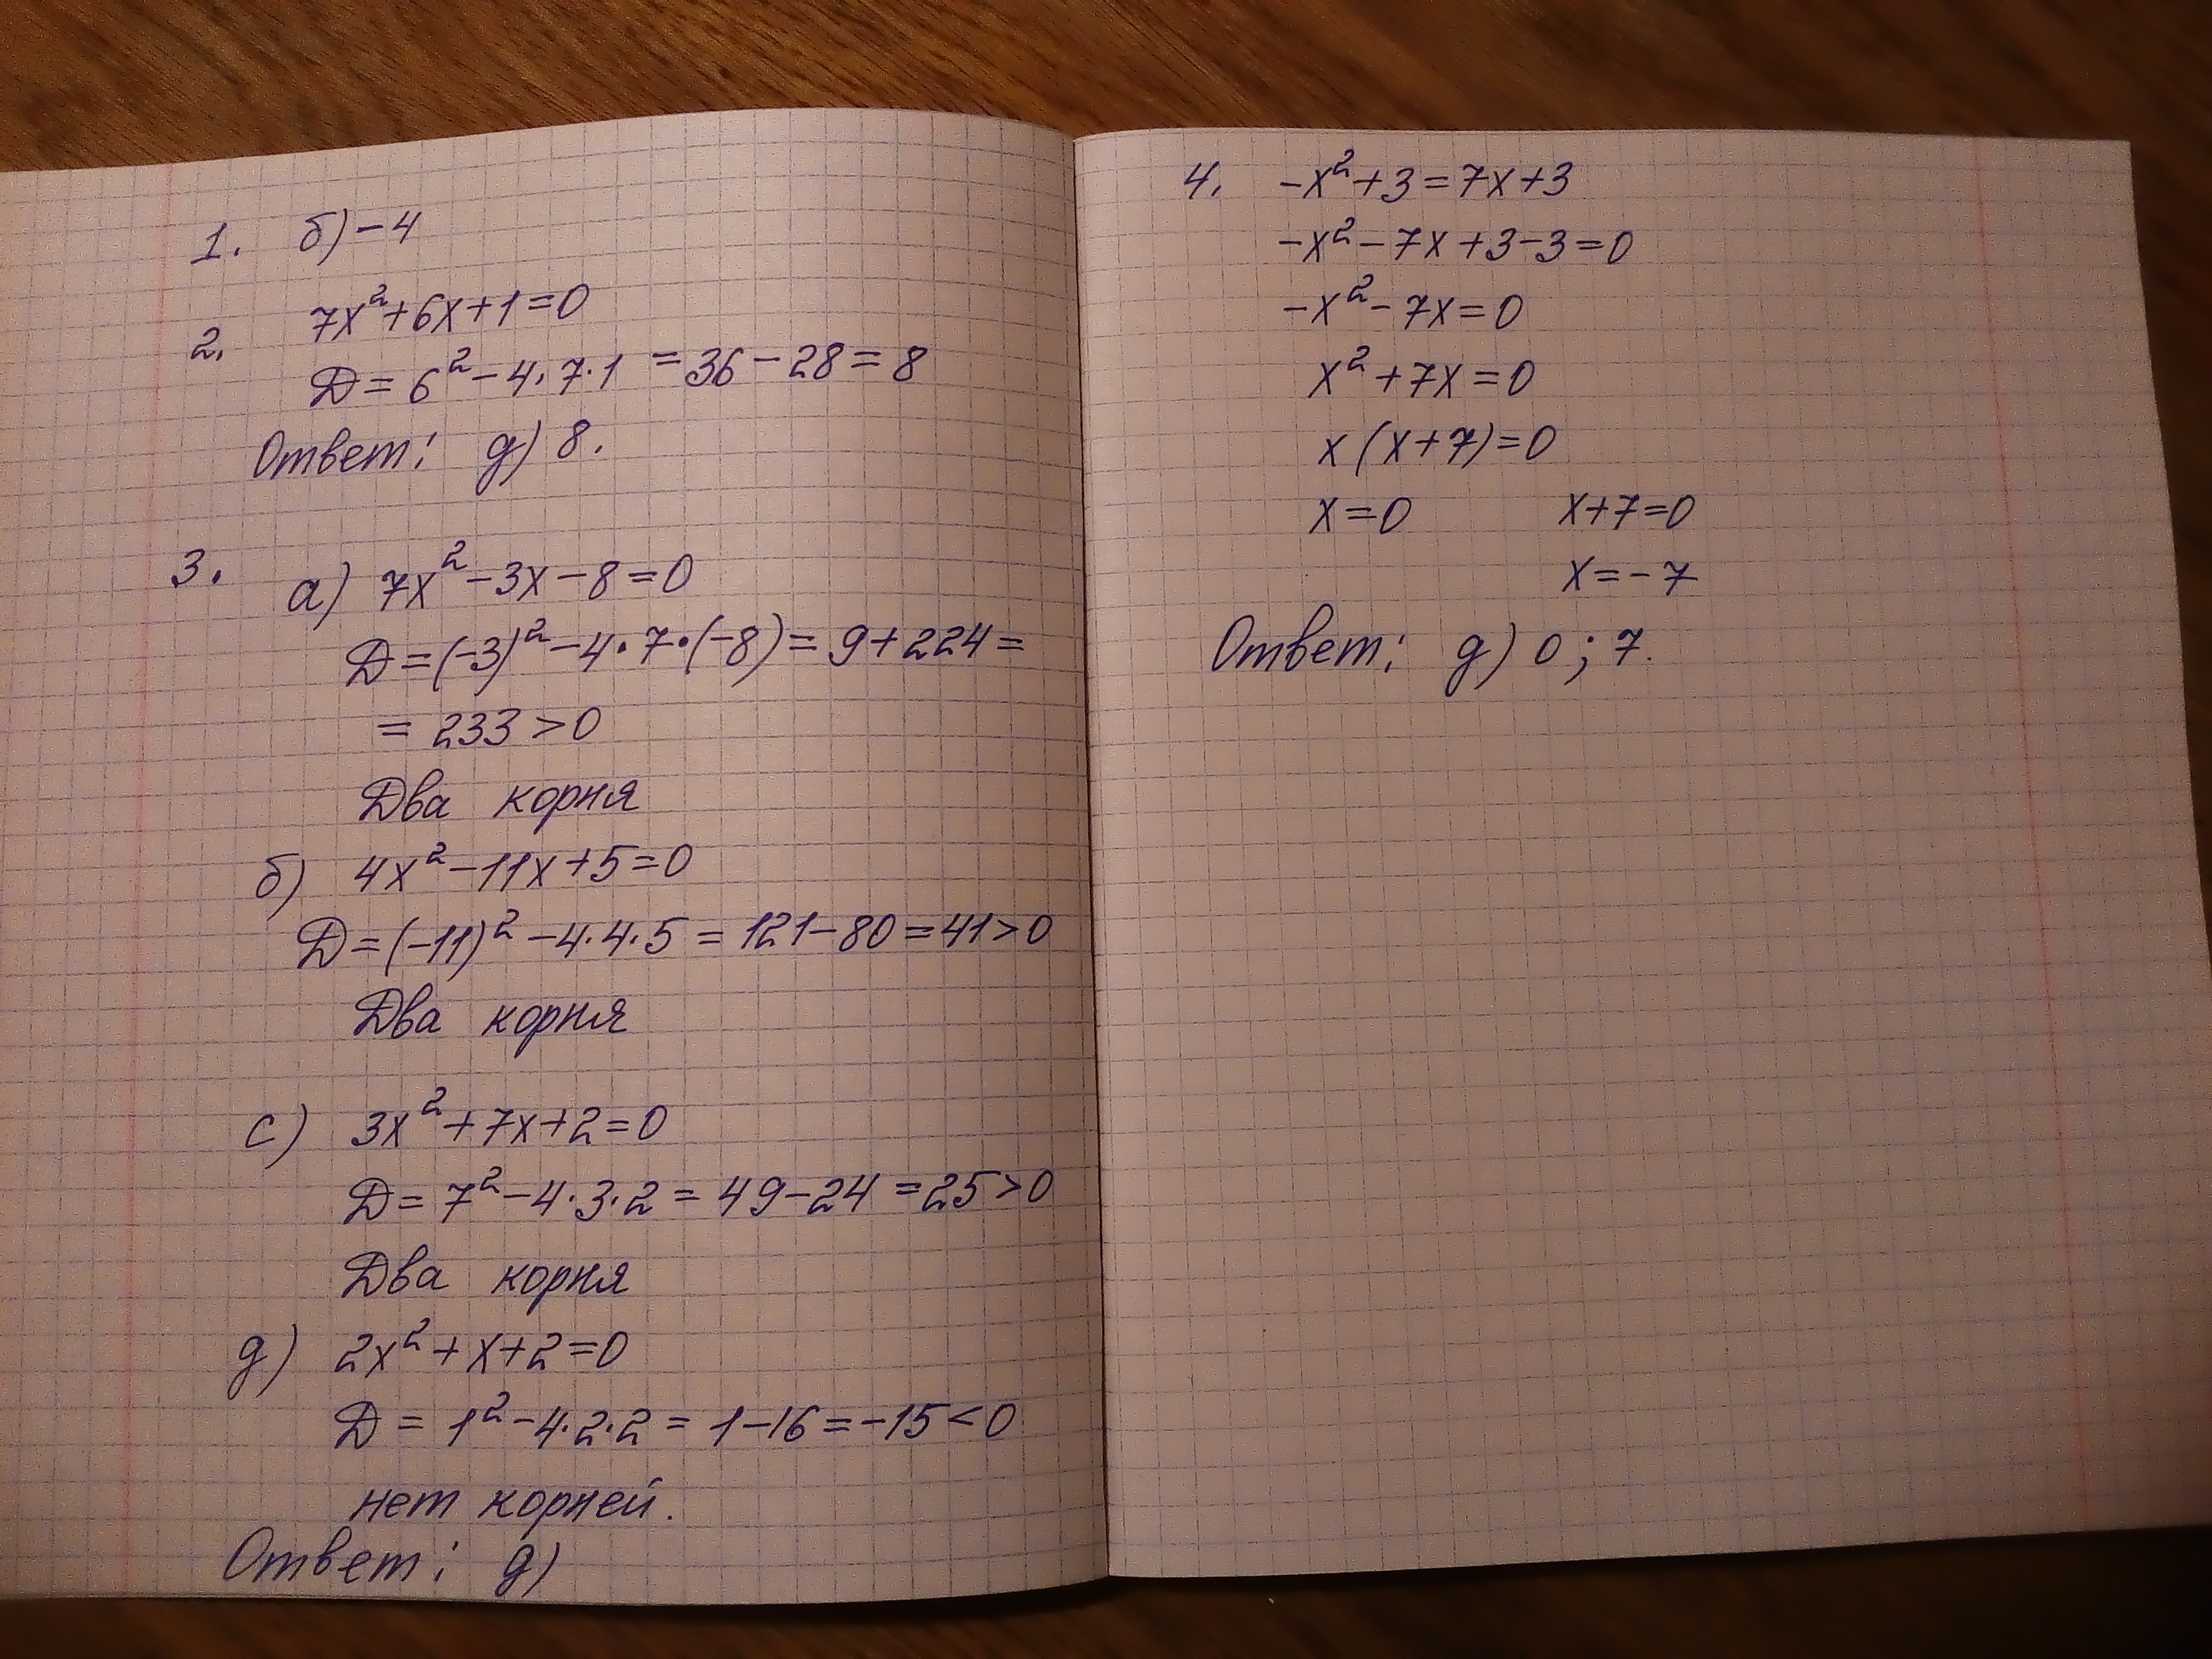 1. б) -4
2. 7x²+6x+1=0
Д = 6² - 4·7·1 = 36 - 28 = 8
Ответ: д) 8.
3. а) 7x² - 3x - 8 = 0
Д = (-3)² - 4·7·(-8) = 9 + 224 =
= 233 > 0
Два корня
б) 4x² - 11x + 5 = 0
Д = (-11)² - 4·4·5 = 121 - 80 = 41 > 0
Два корня
с) 3x² + 7x + 2 = 0
Д = 7² - 4·3·2 = 49 - 24 = 25 > 0
Два корня
д) 2x² + x + 2 = 0
Д = 1² - 4·2·2 = 1 - 16 = -15 < 0
нет корней.
Ответ: д)
4. -x² + 3 = 7x + 3
-x² - 7x + 3 - 3 = 0
-x² - 7x = 0
x² + 7x = 0
x(x+7) = 0
x = 0 x+7=0
x = -7
Ответ: д) 0; 7.